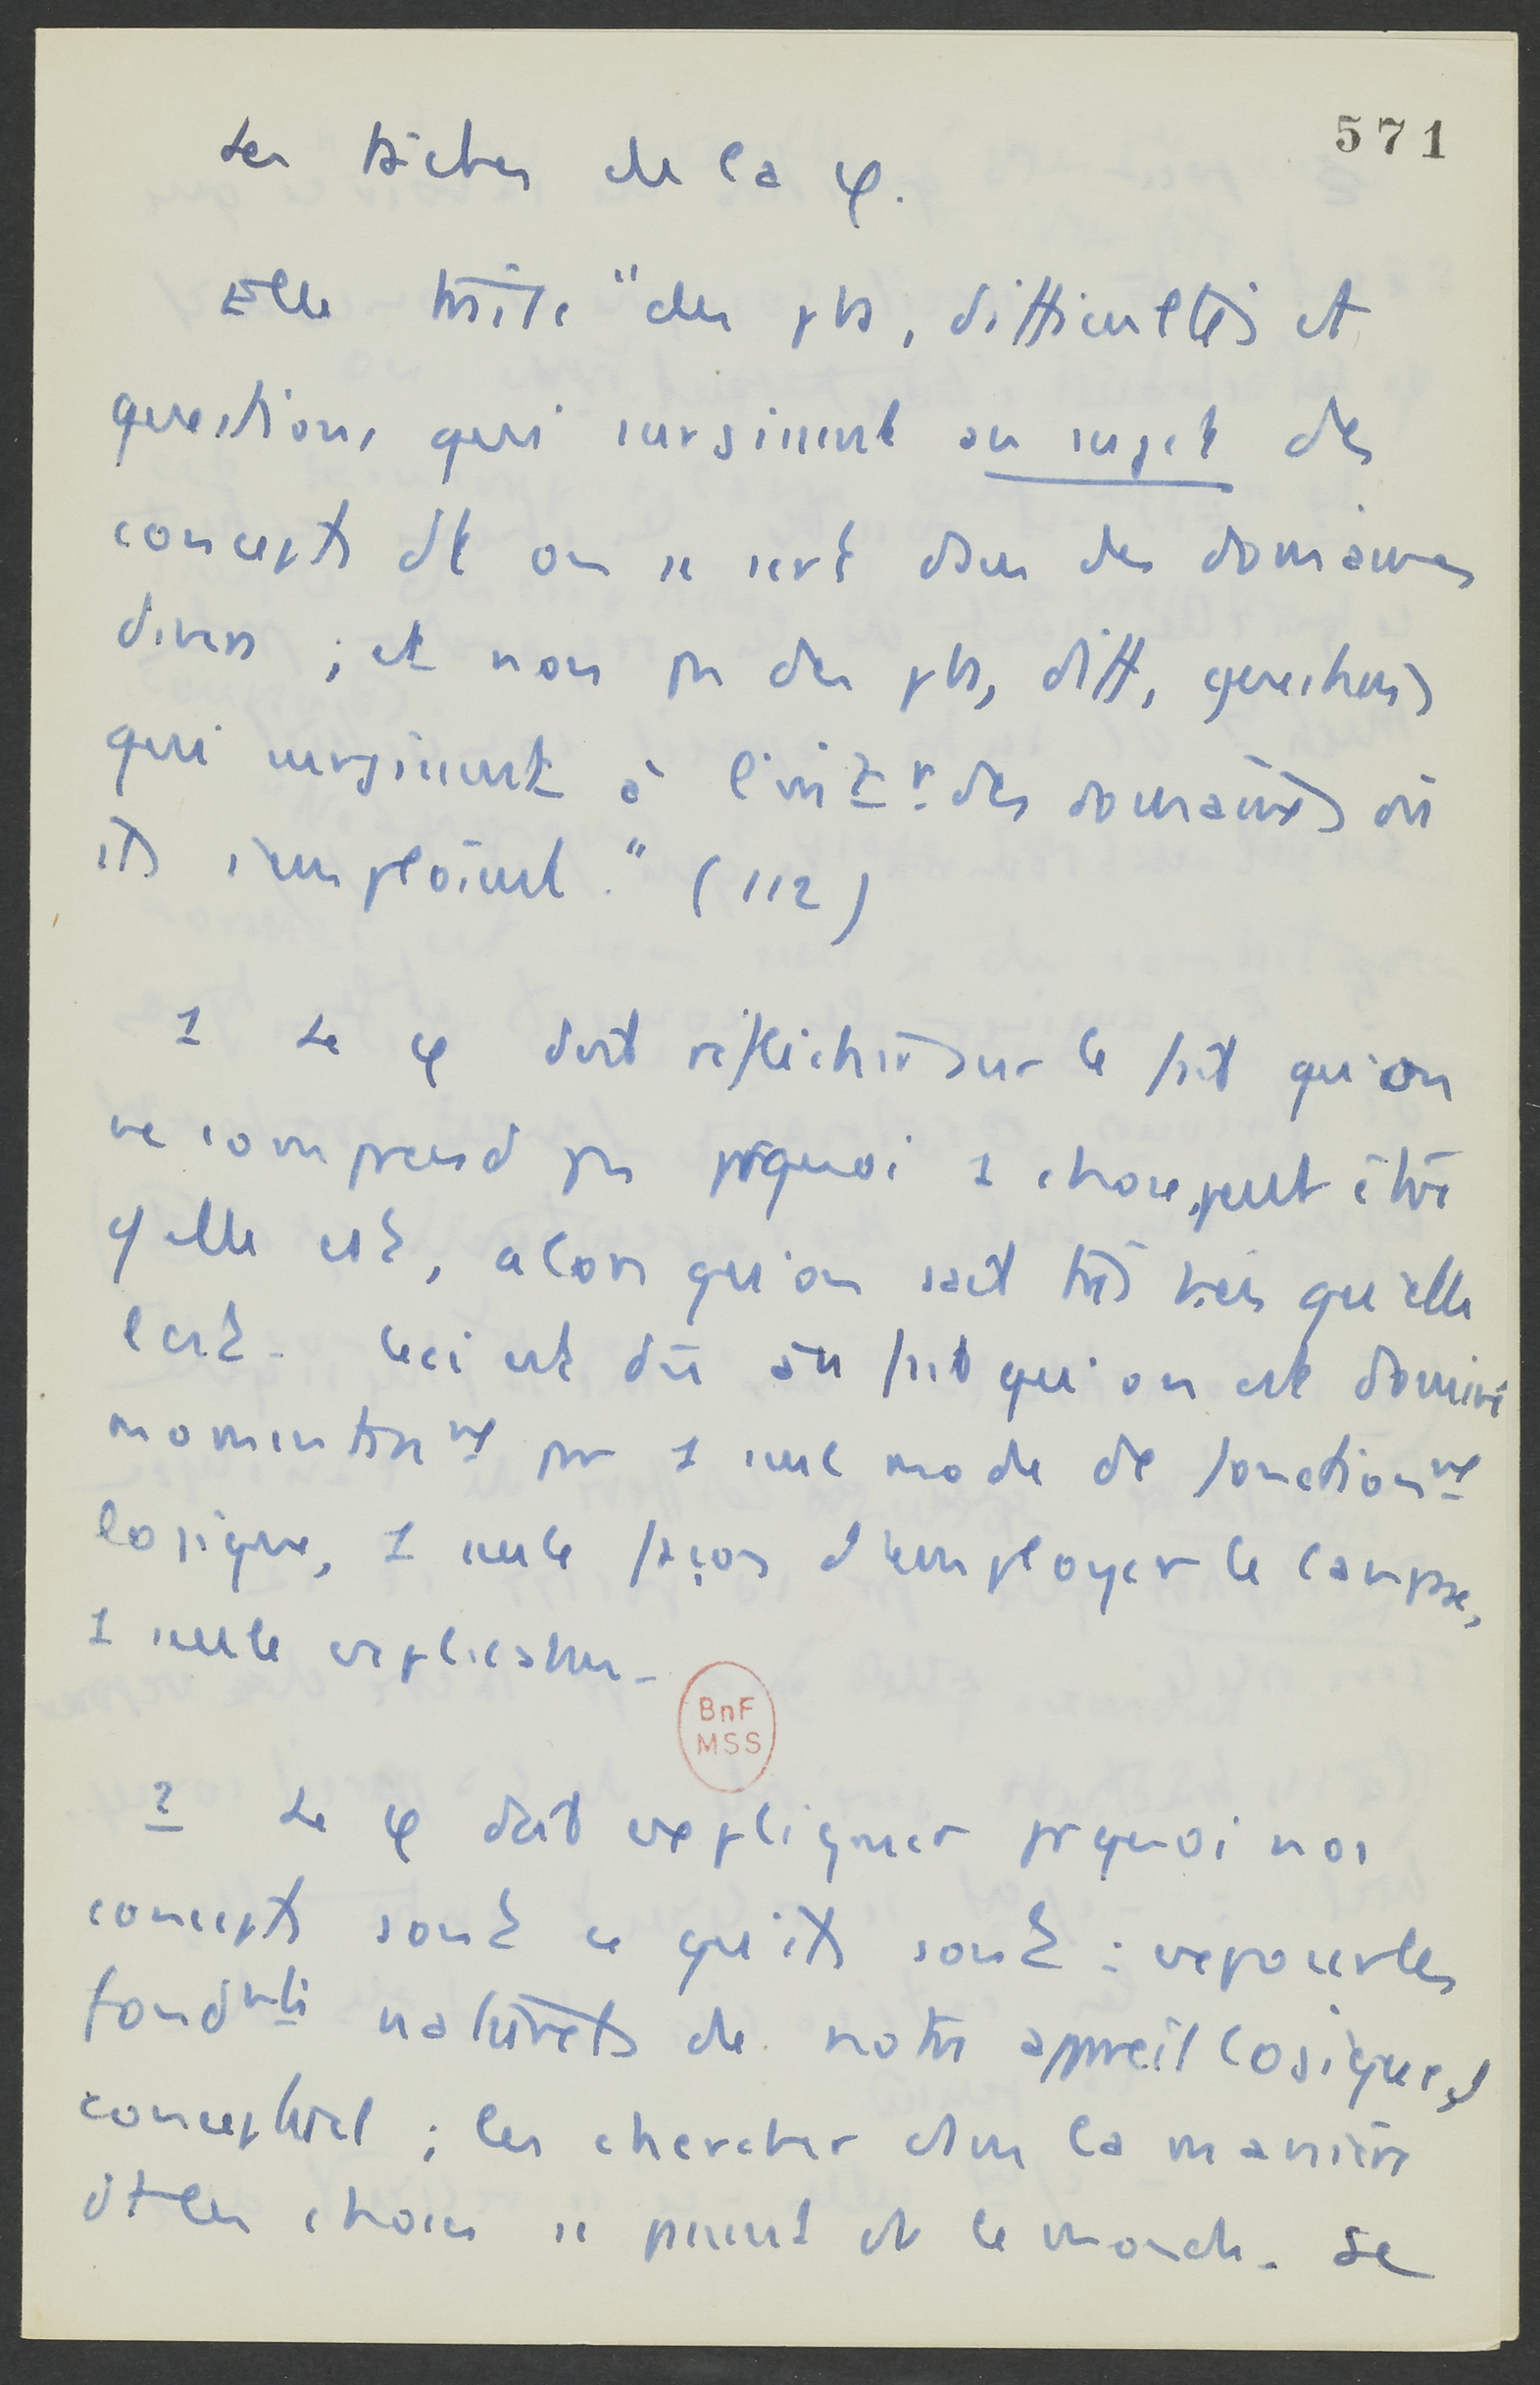 571
Les tâches de la φ.
Elle traite "des pbs, difficultés et
questions qui surgissent au sujet des
concepts dt on se sert dans des domaines
divers ; et non pas des pbs, diff, questions
qui surgissent à l'intr des domaines où
ils s'emploient." (112)
1 Le φ doit réfléchir sur le fait qu'on
ne comprend pas prquoi 1 chose peut être
q elle est, alors qu'on sait très bien qu'elle
l'est. Ceci est dû au fait qu'on est dominé
momentanmt par 1 seul mode de fonctionnmt
logique, 1 seule façon d'employer le langage,
1 seule explication.
BnF
MSS
2 Le φ doit expliquer prquoi nos
concepts sont ce qu'ils sont : exposer les
fondmts naturels de notre appareil logique et
conceptuel ; les chercher dans la manière
dt les choses se passent ds le monde. Le